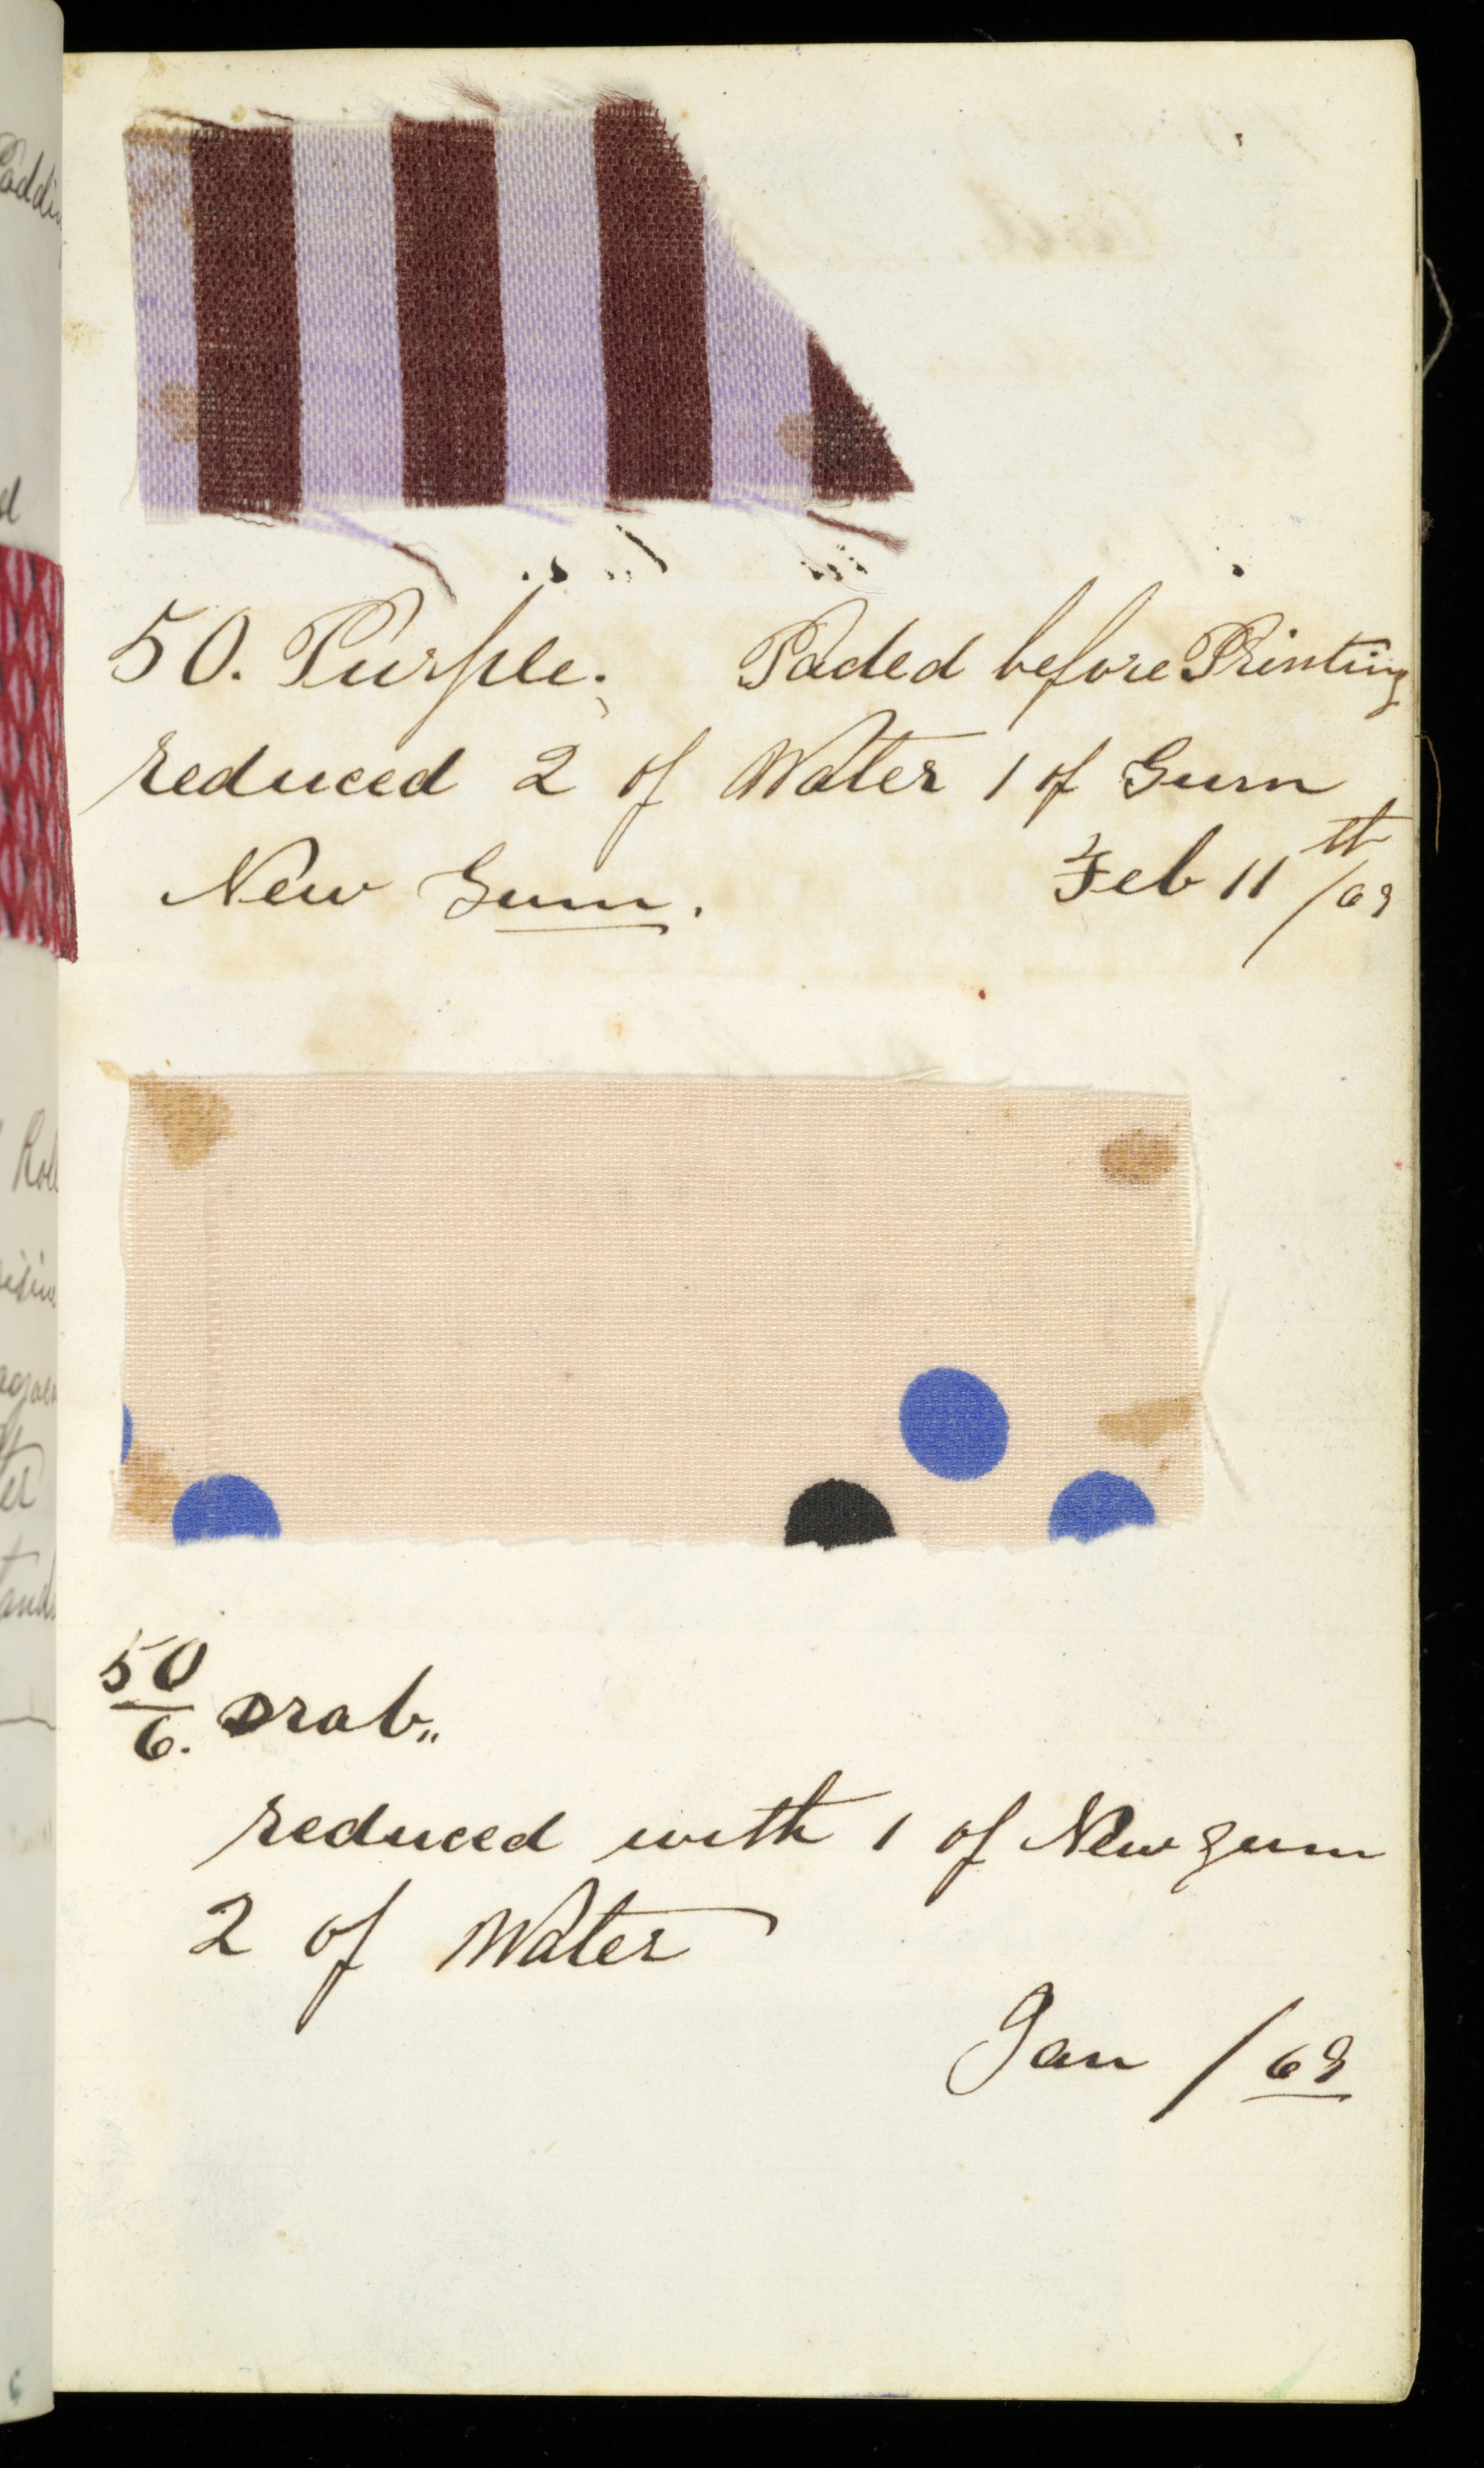 50. Purple. Paded before Printing
reduced 2 of Water 1 of Gum
New Gum. Feb 11th /63
50/6. Drab,,
reduced with 1 of New gum
2 of Water
Jan / 63